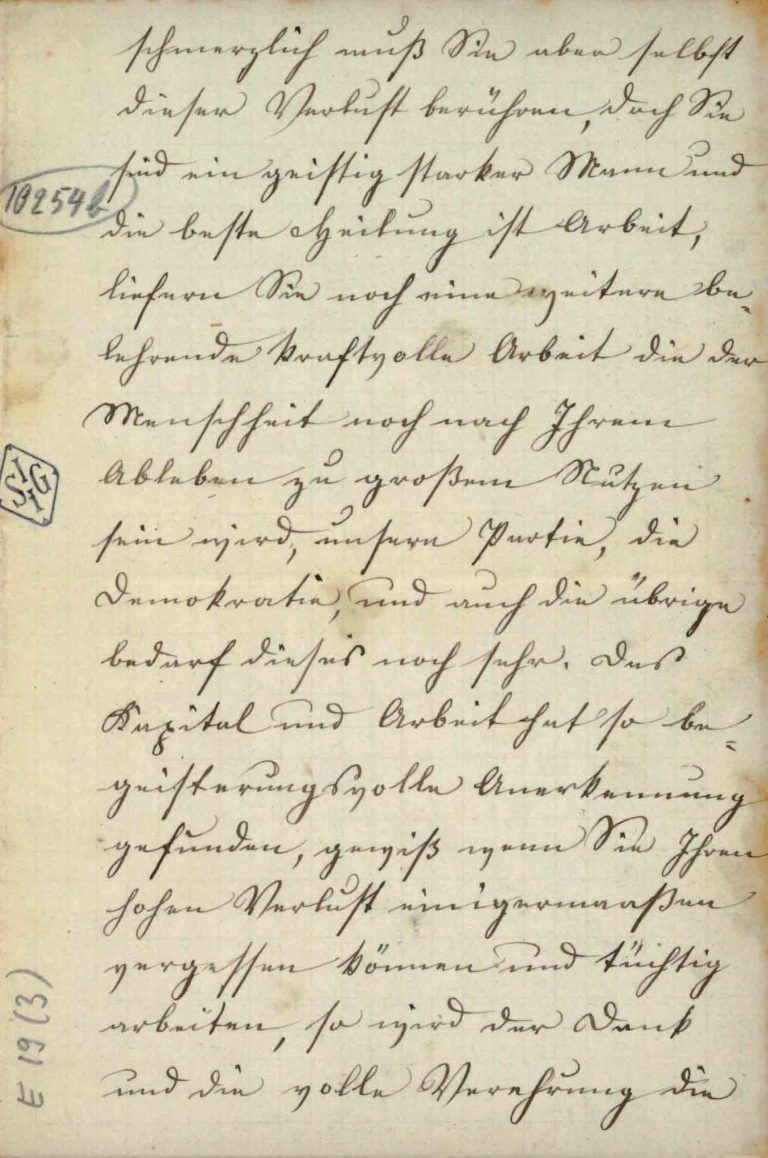 schmerzlich muß Sie aber selbst
dieser Verlust berühren, doch Sie
sind ein geistig starker Mann und
10254b
die beste Heilung ist Arbeit,
liefern Sie noch eine weitere be-
lehrende kraftvolle Arbeit die der
Menschheit noch nach Ihrem
Ableben zu großem Nutzen
IISG
sein wird, unsere Partie, die
Demokratie, und auch die übrige
bedarf dieses noch sehr. Das
Kapital und Arbeit hat so be-
geisterungsvolle Anerkennung
gefunden, gewiß wenn Sie Ihren
hohen Verlust einigermaaßen
vergessen können und tüchtig
arbeiten, so wird der Dank
und die volle Verehrung die
E 19 (3)